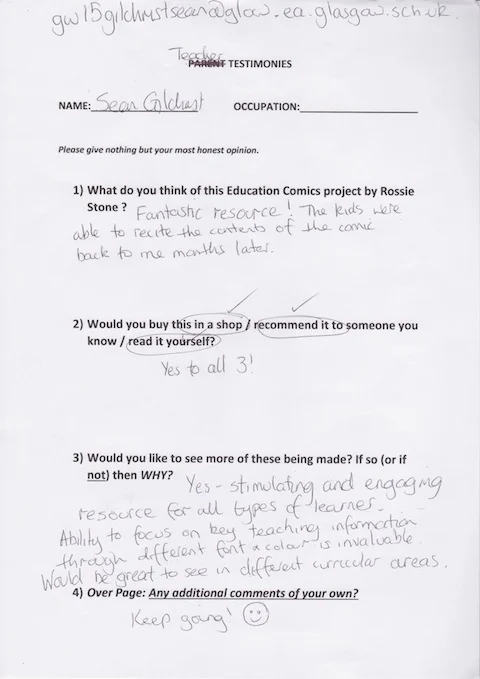 gw15gilchristsean@glow.ea.glasgow.sch.uk
Teacher
PARENT TESTIMONIES
NAME: Sean Gilchrist OCCUPATION:
Please give nothing but your most honest opinion.
1) What do you think of this Education Comics project by Rossie
Stone ? Fantastic resource! The kids were
able to recite the contents of the comic
back to me months later.
2) Would you buy this in a shop / recommend it to someone you
know / read it yourself?
Yes to all 3!
3) Would you like to see more of these being made? If so (or if
not) then WHY? Yes - stimulating and engaging
resource for all types of learner.
Ability to focus on key teaching information
through different font & colour is invaluable.
Would be great to see in different curricular areas.
4) Over Page: Any additional comments of your own?
Keep going! ☺